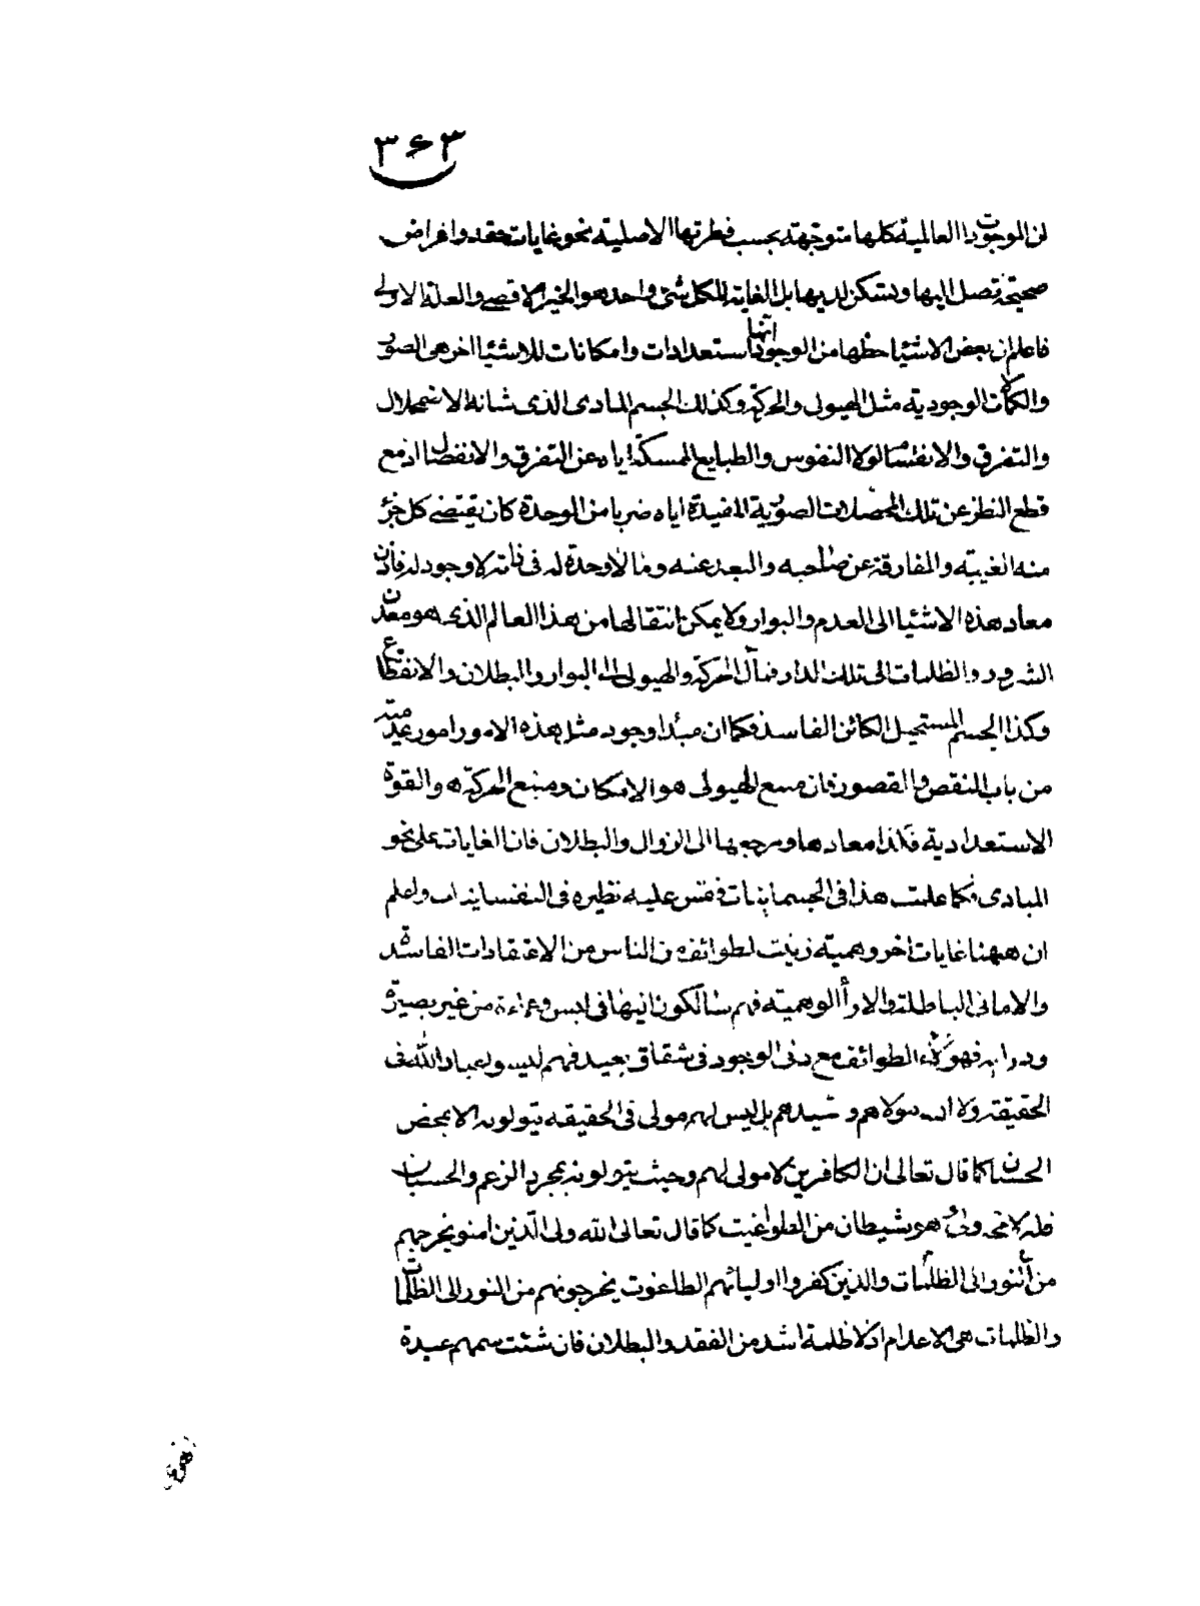 ٣٤٣
ان الموجودات العالمية كلها متوجهة بحسب فطرتها الاصلية نحو غايات حقه واغراض
صحيحة تصل اليها وتسكن لديها بل الغاية للكل شئ واحد هو الخير الاقصى والعلة الاولى
فاعلم ان بعض الاشيا حظها من الوجود انها استعدادات وامكانات للاشيا اخر هى الصور
والكمالات الوجودية مثل الهيولى والحركة وكذلك الجسم المادى الذى شانه الاضمحلال
والتفرق والانفسام لولا النفوس والطبايع الممسكة اياه عن التفرق والانفصال اذ مع
قطع النظر عن تلك المحصلات الصورية المفيدة اياه ضربا من الوحدة كان يقتضى كل جزء
منه الغيبة والمفارقة عن صاحبه والبعد عنه وما لا وحدة له فى ذاته لا وجود له فاذن
معاد هذه الاشيا الى العدم والبوار ولا يمكن انتقالها من هذا العالم الذى هو معدن
الشرور والظلمات الى تلك الدار فمآل الحركة والهيولى الى البوار والبطلان والانقطاع
وكذا الجسم المستحيل الكائن الفاسد فكما ان مبدأ وجود مثل هذه الامور امور عدمية
من باب النقص والقصور فان منبع الهيولى هو الامكان ومنبع الحركة هو القوة
الاستعدادية فكذا معادها ومرجعها الى الزوال والبطلان فان الغايات على نحو
المبادى فكما علمت هذا فى الجسمانيات فقس عليه نظيره فى النفسانيات واعلم
ان ههنا غايات اخر وهمية زينت لطوائف من الناس من الاعتقادات الفاسدة
والامانى الباطلة والارأ الوهمية فهم سالكون اليها فى لبس وعماءة من غير بصيرة
ودراية فهؤلاء الطوائف مع دنى الوجود فى شقاق بعيد فهم ليسوا عباد الله فى
الحقيقة ولا الله مولاهم وسيدهم بل ليس لهم مولى فى الحقيقه يتولونه الا بمحض
الحسبان كما قال تعالى ان الكافرين لا مولى لهم وحيث يتولونه بمجرد الزعم والحسبان
فله لا محه ولى هو شيطان من الطواغيت كما قال تعالى الله ولى الذين امنو يخرجهم
من النور الى الظلمات والذين كفروا اوليائهم الطاغوت يخرجونهم من النور الى الظلمات
والظلمات هى الاعدام اذ لا ظلمة اشد من الفقد والبطلان فان شئت سمهم عبدة